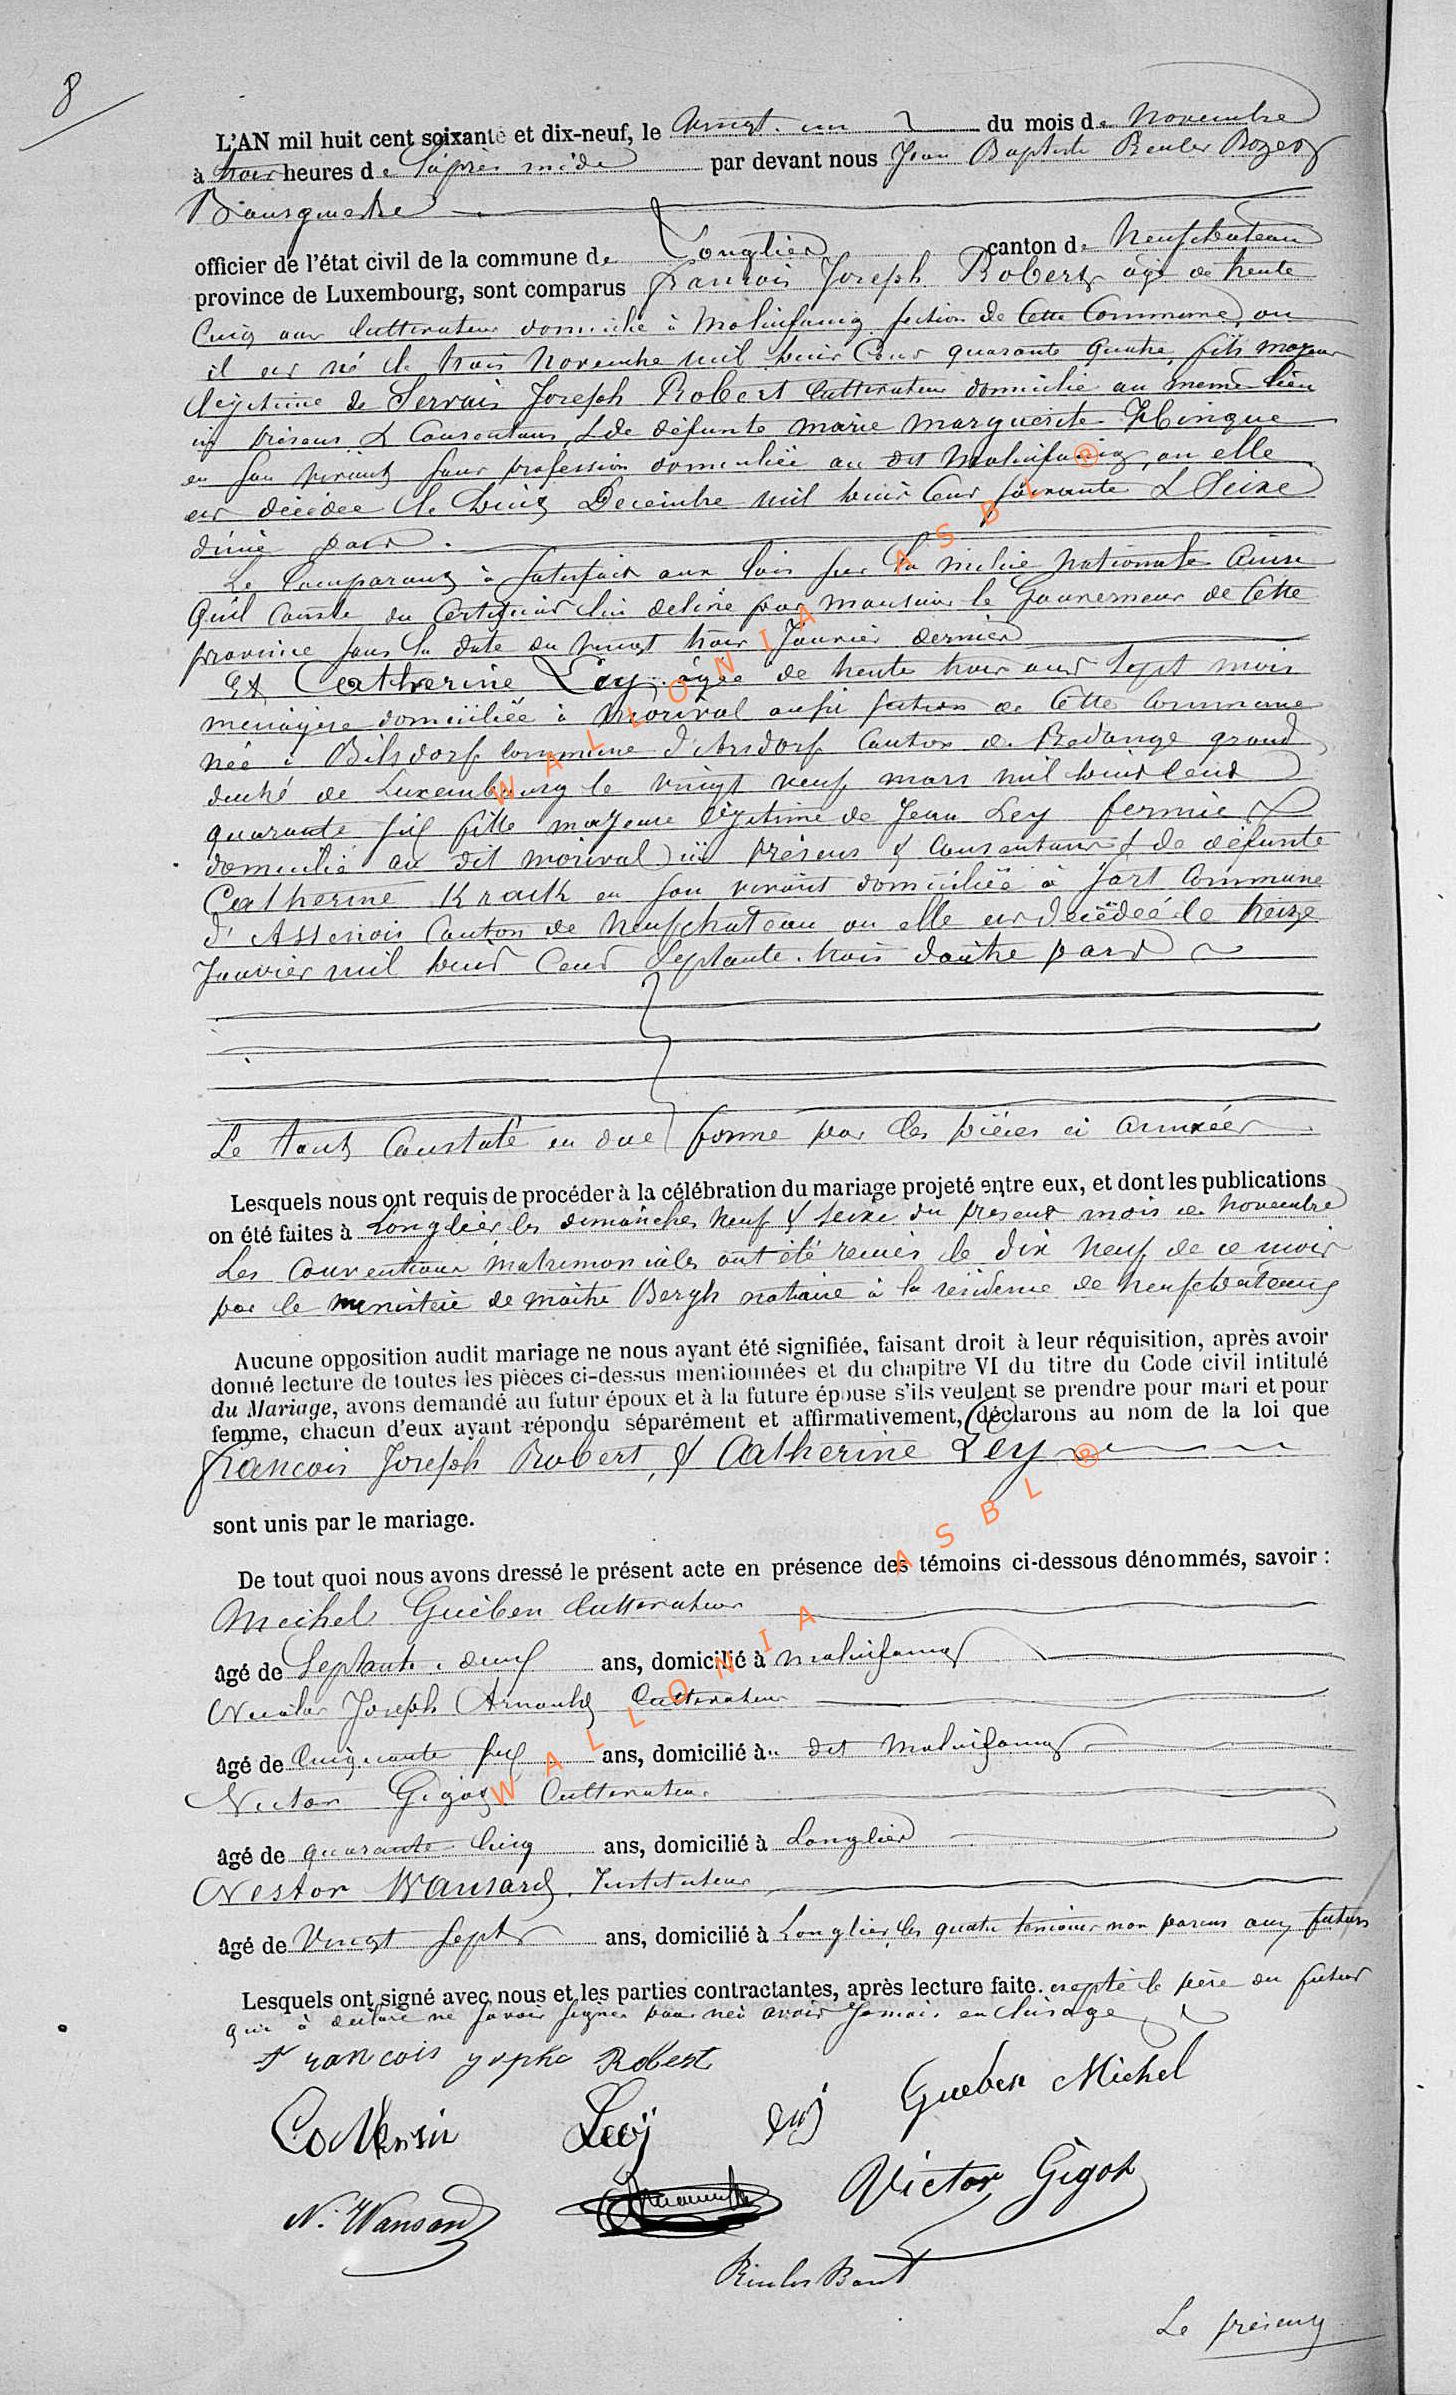 8
L'AN mil huit cent soixante et dix-neuf, le vingt un du mois de Novembre
à trois heures de l'après midi par devant nous Jean Baptiste Reuler Rozet
Bourgmestre
officier de l'état civil de la commune de Longlier canton de Neufchateau
province de Luxembourg, sont comparus francois Joseph Robert agé de trente
Cinq ans Cultivateur domicilié à Molinfaing section de Cette Commune, ou
il est né le trois Novembre mil huit Cent quarante quatre, fils majeur
légitime de Servais Joseph Robert Cultivateur domicilié au meme lieu
ici présent & Consentant, & de défunte marie marguerite
en son vivant sans profession domiciliée au dit Molinfaing, ou elle
est décédée le huit Decembre mil huit Cent soixante & Seize
d'une part.
Le Comparant à satisfait aux lois sur la milice Nationale Ainsi
Qu'il Conste du Certificat lui delivré par monsieur le Gouverneur de Cette
province sous la date du vingt trois Janvier dernier
Et Catherine Ley agée de trente trois ans sept mois
menagère domiciliée à Morival aussi section de Cette Commune
née à Bilsdorf Commune d'Arsdorf Canton de Redange grand
duché de Luxembourg le vingt neuf mars mil huit Cent
quarante six fille majeure légitime de Jean Ley fermier
domicilié au dit morival ici présent & Consentant & de défunte
Catherine Krack en son vivant domiciliée à fart Commune
d'Assenois Canton de Neufchateau ou elle est décédée le treize
Janvier mil huit Cent Septante trois d'autre part
Le tout Constaté en due forme par les pièces ci annexées
Lesquels nous ont requis de procéder à la célébration du mariage projeté entre eux, et dont les publications
on été faites à Longlier les dimanches neuf & seize du present mois de novembre
Les Conventions matrimoniales ont été recues le dix neuf de ce mois
par le ministère de maitre Bergh notaire à la résidence de Neufchateau
Aucune opposition audit mariage ne nous ayant été signifiée, faisant droit à leur réquisition, après avoir
donné lecture de toutes les pièces ci-dessus mentionnées et du chapitre VI du titre du Code civil intitulé
du Mariage, avons demandé au futur époux et à la future épouse s'ils veulent se prendre pour mari et pour
femme, chacun d'eux ayant répondu séparément et affirmativement, déclarons au nom de la loi que
francois Joseph Robert, & Catherine Ley
sont unis par le mariage.
De tout quoi nous avons dressé le présent acte en présence des témoins ci-dessous dénommés, savoir :
Meihel Guében Cultivateur
âgé de Septante deux ans, domicilié à Molinfaing
Nicolas Joseph Arnould Cultivateur
âgé de Cinquante six ans, domicilié à dit Molinfaing
Victor Gigot Cultivateur
âgé de quarante Cinq ans, domicilié à Longlier
Nestor Wansard Instituteur
âgé de Vingt Sept ans, domicilié à Longlier, les quatre temoins non parens aux futurs
Lesquels ont signé avec nous et les parties contractantes, après lecture faite. excepté le père du futur
qui à déclaré ne savoir signer pour n'en avoir Jamais eu l'usage
Francois Robert
Ley
Gueben Michel
N. Wansard
Victor Gigot
Le présent
WALLONIA ASBL ®
WALLONIA ASBL ®